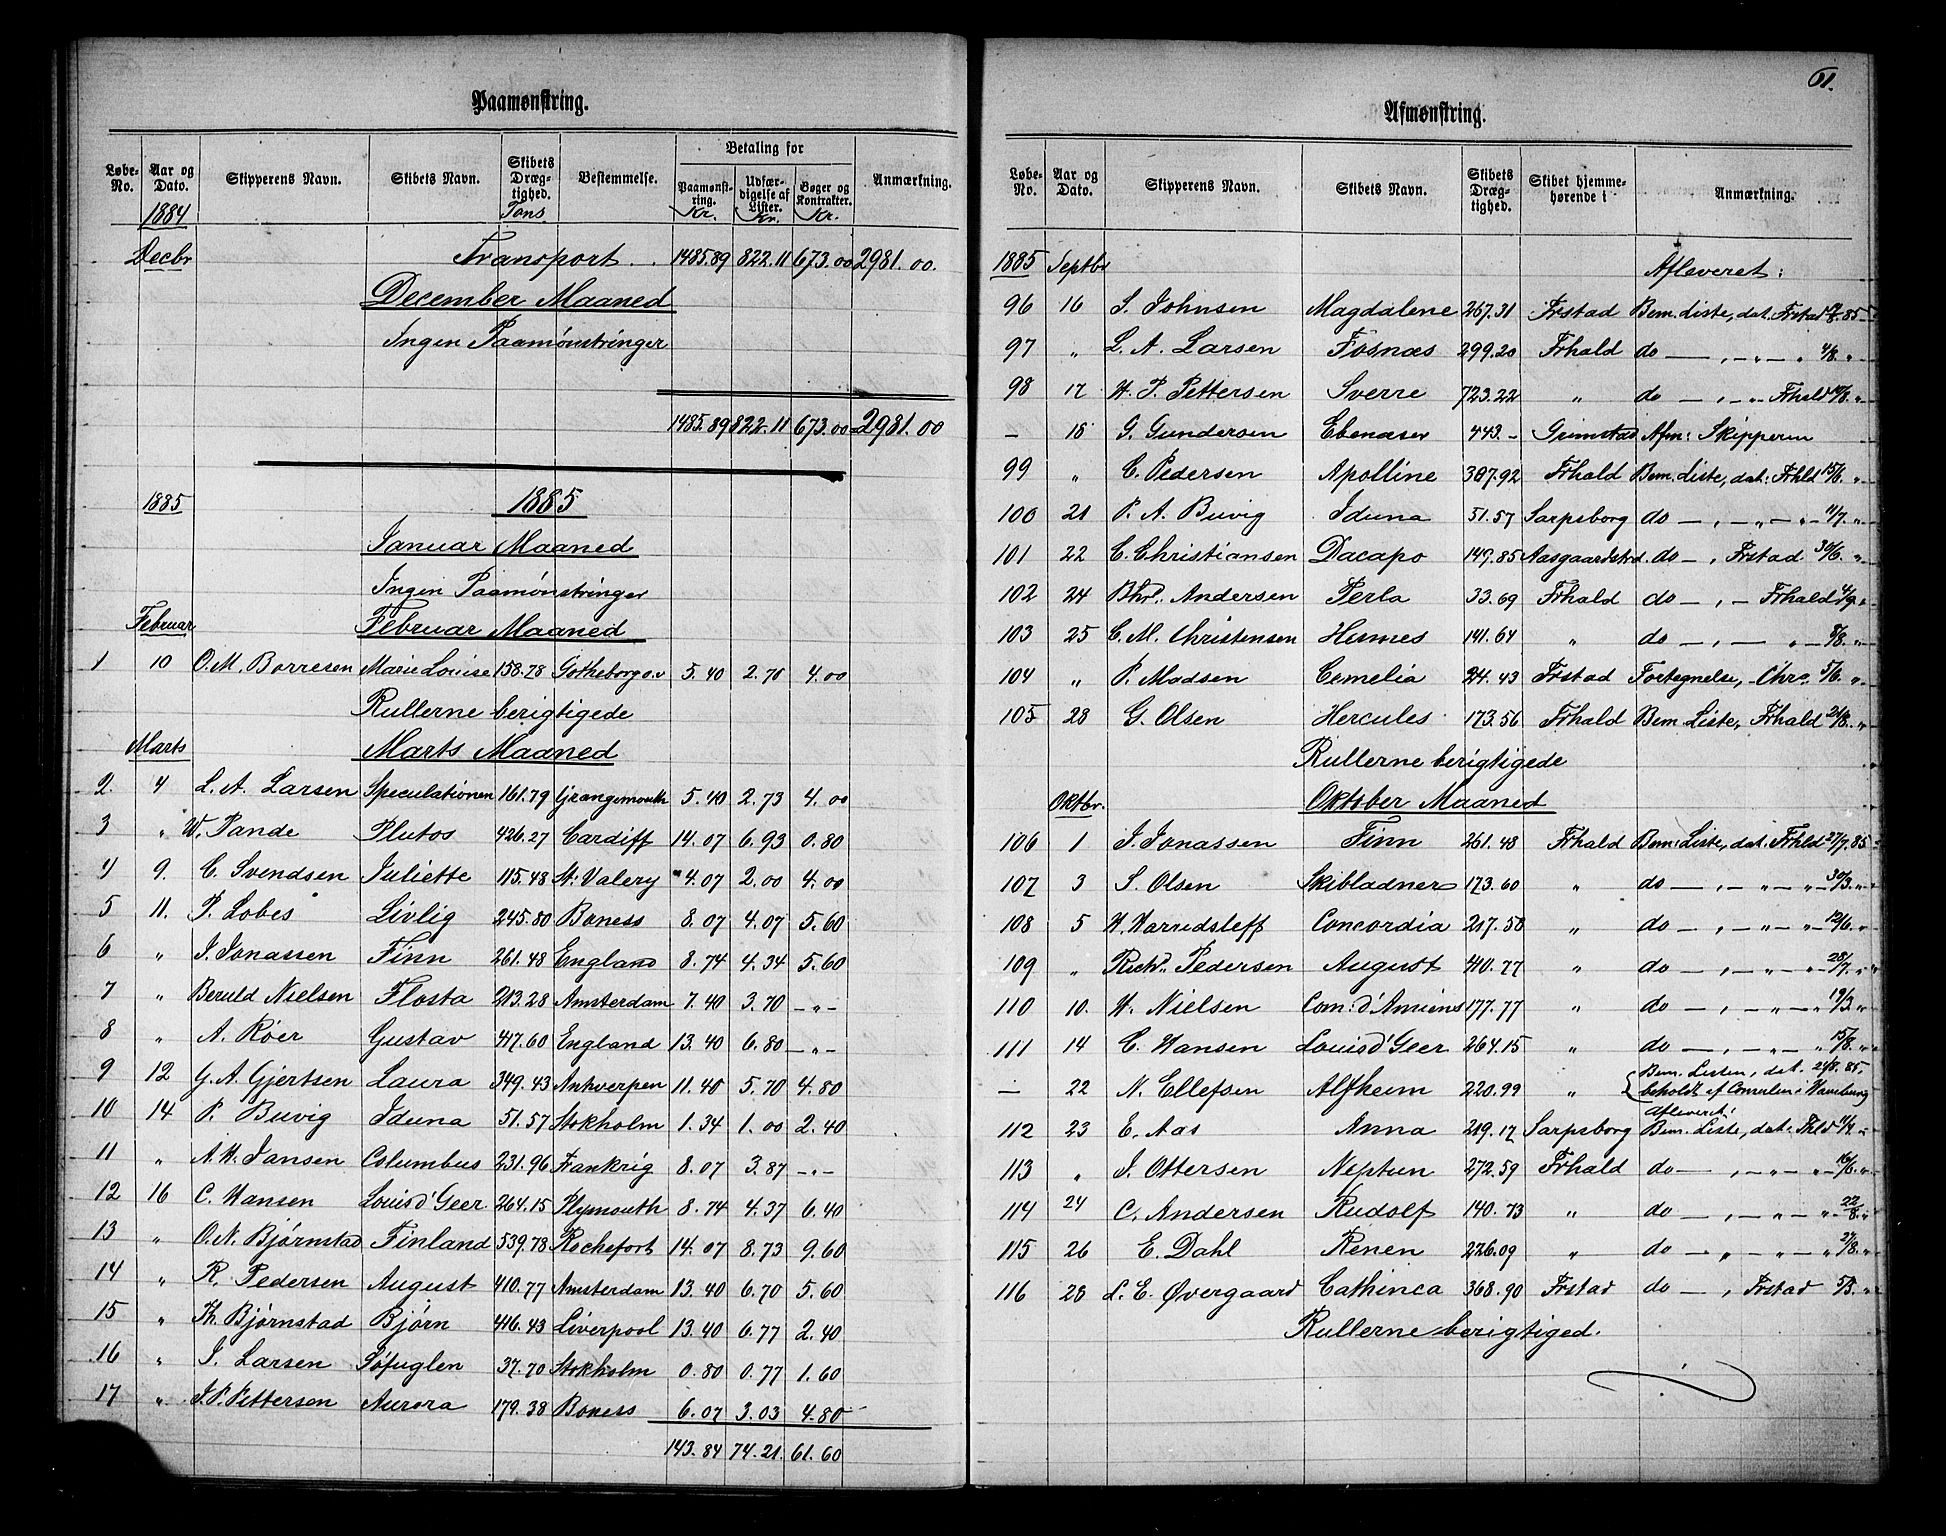 Paamønstring.
Løbe-No. | Aar og Dato. | Skipperens Navn. | Skibets Navn. | Skibets Dræg-tighed. Tons | Bestemmelse. | Betaling for | Anmærkning.
Paamønst-ring. Kr. | Udfær-digelse af Lister. Kr. | Bøger og Kontrakter. Kr.
1884
Decbr Transport . . 1485.89 822.11 673.00 2981.00.
December Maaned
Ingen Paamønstringer
1485.89 822.11 673.00 2981.00
1885 1885
Januar Maaned
Ingen Paamønstringer
Februar Februar Maaned
1 10 O. M. Borresen Marie Louise 158.78 Gotheborg o.v 5.40 2.70 4.00
Rullerne berigtigede
Marts Marts Maaned
2. 4 L. A. Larsen Speculationen 161.79 Grangemouth 5.40 2.73 4.00
3 " W. Pande Plutos 426.27 Cardiff 14.07 6.93 0.80
4 9. C. Svendsen Juliette 115.48 St. Valery 4.07 2.00 4.00
5 11. P. Lobes Livlig 245.80 Boness 8.07 4.07 5.60
6 " J. Jonassen Finn 261.48 England 8.74 4.34 5.60
7 " Beruld Nielsen Flosta 213.28 Amsterdam 7.40 3.70 – " –
8 " A. Röer Gustav 417.60 England 13.40 6.80 – " –
9 12 G. A. Gjertsen Laura 349.43 Antverpen 11.40 5.70 4.80
10 14 P. Buvig Iduna 51.57 Stokholm 1.34 1.00 2.40
11 " A. H. Jansen Columbus 231.96 Frankrig 8.07 3.87 – " –
12 16 C. Hansen Louis d'Geer 264.15 Plymouth 8.74 4.37 6.40
13 " O. N. Bjørnstad Finland 539.78 Rochefort 14.07 8.73 9.60
14 " R. Pedersen August 410.77 Amsterdam 13.40 6.70 5.60
15 " Th. Bjørnstad Bjørn 446.43 Liverpool 13.40 6.77 2.40
16 " J. Larsen Söfuglen 37.70 Stokholm 0.80 0.77 1.60
17 " J. P. Pettersen Aurora 179.38 Boness 6.07 3.03 4.80
143.84 74.21 61.60
61.
Afmønstring.
Løbe-No. | Aar og Dato. | Skipperens Navn. | Skibets Navn. | Skibets Dræg-tighed. | Skibet hjemme-hørende i | Anmærkning.
1885 Septbr Afleveret:
96 16 S. Johnsen Magdalene 267.31 Frstad Bem. Liste, dat. Frstad 85
97 " L. A. Larsen Fosnæs 299.20 Frhald do – , – " – " 4/8. "
98 17 H. P. Pettersen Sverre 723.22 " do – , – " Frhald "
– 18 G. Gundersen Ebenæser 443. – Grimstad Afm: Skipperen
99 " C. Pedersen Apolline 307.92 Frhald Bem. Liste, dat: Frhld 15/6. "
100 21 P. A. Buvig Iduna 51.57 Sarpsborg do – , – " – " – 11/7. "
101 22 C. Christiansen Dacapo 149.85 Aasgaardstrd. do – , Frstad 30/6. "
102 24 Bhr. Andersen Perla 33.69 Frhald do – , – Frhald 4/9. "
103 25 C. M. Christensen Hermes 141.64 " do – , – " – 8/8. "
104 " P. Madsen Cornelia 24.43 Frstad Fortegnelse, Chra. 5/6. "
105 28 G. Olsen Hercules 173.56 Frhald Bem. Liste, Frhald 21/8. "
Rullerne berigtigede
Oktbr. Oktober Maaned
106 1 J. Jonassen Finn 261.48 Frhald Bem. Liste, dat. Frhld 27/7. 85
107 3 S. Olsen Skibladner 173.60 " do – , – " – " – 30/3. "
108 5 H. Harnedsleff Concordia 217.58 " do – , – " – " – 12/6. "
109 " Richd. Pedersen August 410.77 " do – , – " – " – 28/7. "
110 10. H. Nielsen Com: d'Amiens 177.77 " do – , – " – " 19/3. "
111 14 C. Hansen Louis d'Geer 264.15 " do – , – " – " 15/8. "
– 22 N. Ellefsen Alfheim 220.99 " Bem. Listen, dat. 24/8. 85, beholdt af Consulen i Hamburg
Afleveret:
112 23 E. Aas Anna 219.17 Sarpsborg Bem. Liste, dat: Fhld "
113 " J. Ottersen Neptun 272.59 Frhald do – , – " – " – 16/6. "
114 24 C. Andersen Rudolf 140.73 " do – , – " – " 22/8. "
115 26 E. Dahl Renen 226.09 " do – " – " – " 27/8. "
116 28 L. E. Øvergaard Cathinca 368.90 Frstad do – , Frstad 5/3. "
Rullerne berigtiged.